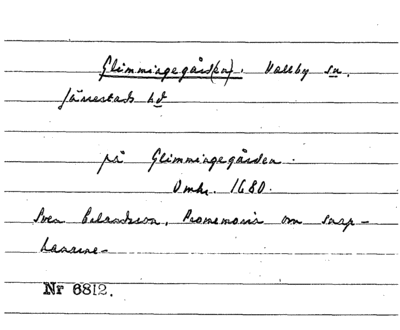 Glimmingegård(en). Vallby sn.
Järrestads hd
på Glimmingegården.
Omkr. 1680.
Sven Erlandsson, Promemoria om snap-
hanarne-
Nr 6812.